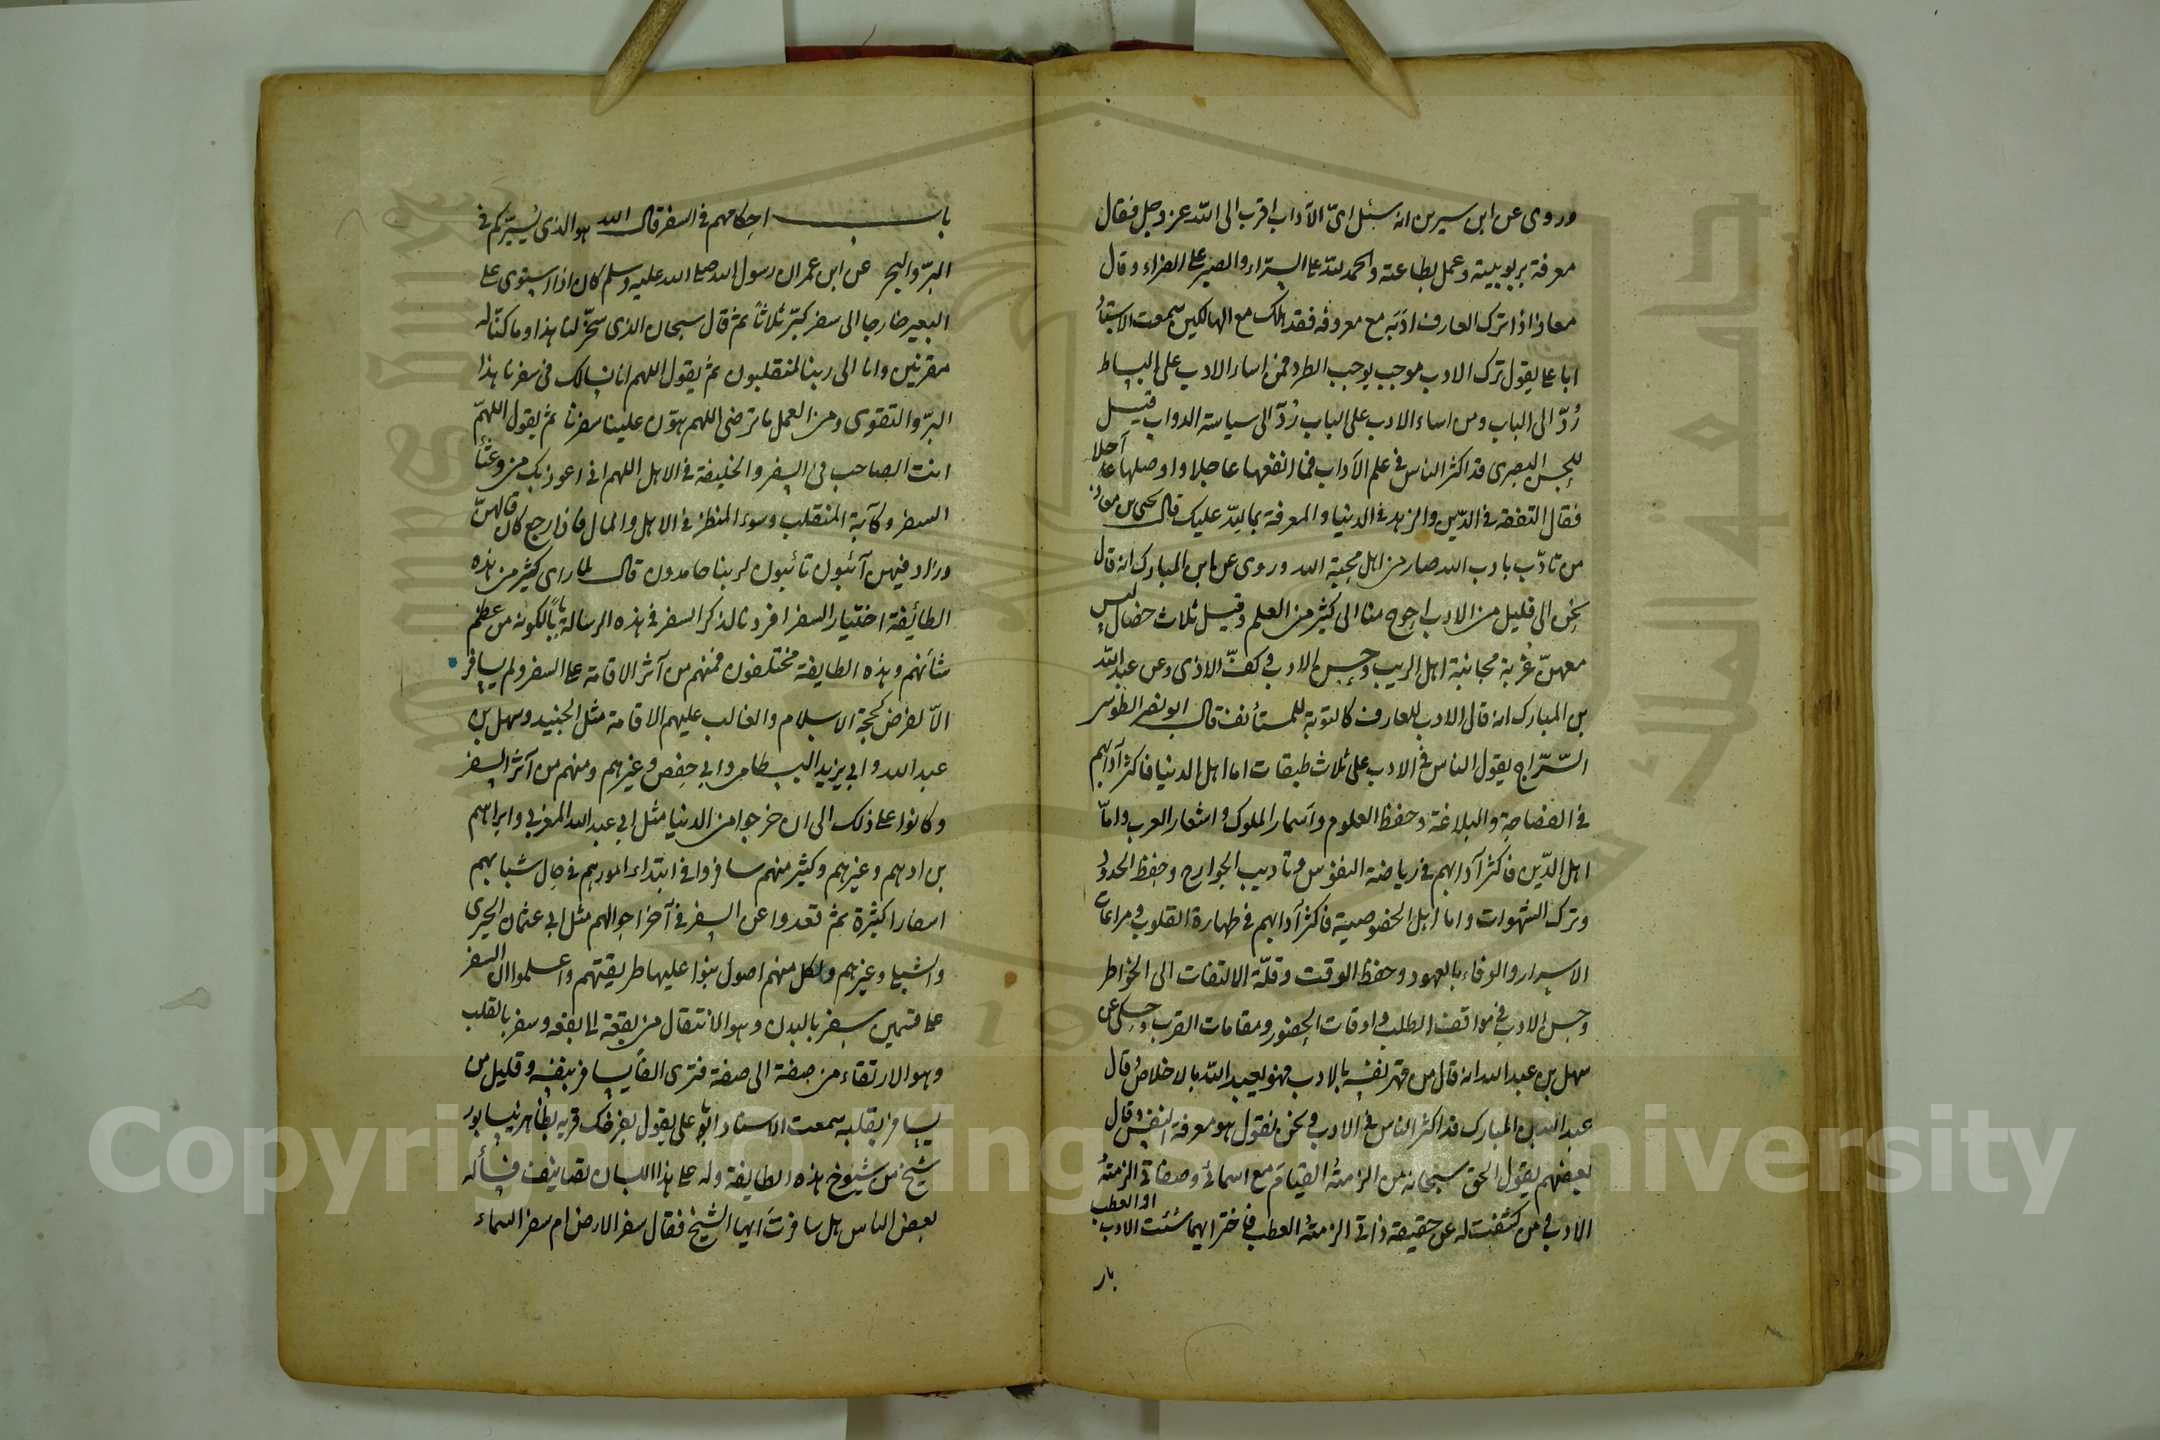 وروى عن ابن سيرين انه سئل اىّ الآداب اقرب الى الله عز وجل فقال
معرفة بربوبيته وعمل بطاعته والحمد لله على السرّاء والصبر على الضراء وقال
معاذ اذا ترك العارف ادبَه مع معروفه فقد هلك مع الهالكين سمعت الاستاذ
ابا على يقول ترك الادب موجب يوجب الطرد فمن اساء الادب على البساط
رُدّ الى الباب ومن اساء الادب على الباب رُدّ الى سياسة الدواب قيل
للحسن البصرى قد اكثر الناس فى علم الآداب فما انفعها عاجلا واوصلها آجلا
فقال التفقه فى الدّين والزهد فى الدنيا والمعرفة بما لله عليك قال يحيى بن معاذ
من تادّب بادب الله صار من اهل محبة الله وروى عن ابن المبارك انه قال
نحن الى قليل من الادب احوج منا الى كثير من العلم وقيل ثلاث خصال ليس
معهنّ غُربة مجانبة اهل الريب وحسن الادب وكفّ الاذى وعن عبد الله
بن المبارك انه قال الادب للعارف كالتوبة للمستأنف قال ابو نصر الطوسى
السّرّاج يقول الناس فى الادب على ثلاث طبقات اما اهل الدنيا فاكثر آدابهم
فى الفصاحة والبلاغة وحفظ العلوم واسمار الملوك واشعار العرب وامّا
اهل الدّين فاكثر آدابهم فى رياضة النفوس وتاديب الجوارح وحفظ الحدود
وترك الشهوات واما اهل الخصوصية فاكثر آدابهم فى طهارة القلوب ومراعات
الاسرار والوفاء بالعهود وحفظ الوقت وقلّة الالتفات الى الخواطر
وحسن الادب فى مواقف الطلب واوقات الحضور ومقامات القرب وحكى عن
سهل بن عبد الله انه قال من قهر نفسه بالادب فهو يعبد الله بالاخلاص وقال
عبد الله بن المبارك قد اكثر الناس فى الادب ونحن نقول هو معرفة النفس وقال
بعضهم يقول الحق سبحانه من الزمتُه القيام مع اسمائى وصفاتى الزمتُه
الادب ومن كشفت له عن حقيقة ذاتى الزمتُه العطب فاختر ايهما شئت الادب
او العطب
باب
باب احكامهم فى السفر قال الله هو الذى يُسيّركم فى
البرّ والبحر عن ابن عمر ان رسول الله صلى الله عليه وسلم كان اذا استوى على
البعير خارجا الى سفر كبّر ثلاثاً ثم قال سبحان الذى سخّر لنا هذا وما كنّا له
مقرنين وانا الى ربنا لمنقلبون ثم يقول اللهم انا نسالك فى سفرنا هذا
البرّ والتقوى ومن العمل ما ترضى اللهم هوّن علينا سفرنا ثم يقول اللهمّ
انت الصاحب فى السفر والخليفة فى الاهل اللهم انى اعوذ بك من وعثأ
السفر وكآبة المنقلب وسوء المنظر فى الاهل والمال فاذا رجع كان قالهنّ
وزاد فيهن آئبون تائبون لربنا حامدون قال لما راى كثير من هذه
الطائفة اختيار السفر افردنا لذكر السفر فى هذه الرسالة باباً لكونه من عظم
شأنهم وهذه الطايفة مختلفون فمنهم من آثر الاقامة على السفر ولم يسافر
الاّ لفرض كحجة الاسلام والغالب عليهم الاقامة مثل الجنيد وسهل بن
عبد الله وابى يزيد البسطامى وابى حفص وغيرهم ومنهم من آثر السفر
وكانوا على ذلك الى ان خرجوا من الدنيا مثل ابى عبد الله المغربى وابراهيم
بن ادهم وغيرهم وكثير منهم سافروا فى ابتداء امورهم فى حال شبابهم
اسفارا كثيرة ثم قعدوا عن السفر فى آخر احوالهم مثل ابى عثمان الحيرى
والشبلى وغيرهم ولكل منهم اصول بنوا عليها طريقتهم واعلموا ان السفر
على قسمين سفر بالبدن وهو الانتقال من بقعة الى بقعه وسفر بالقلب
وهو الارتقاء من صفة الى صفة فترى الفاً يسافر بنفسه وقليل من
يسافر بقلبه سمعت الاستاذ ابا على يقول بفرخك قرية بظاهر نيسابور
شيخ من شيوخ هذه الطايفة وله على هذا اللسان تصانيف فسأله
بعض الناس هل سافرتَ ايها الشيخ فقال سفر الارض ام سفر السماء
Copyright © King Saud University